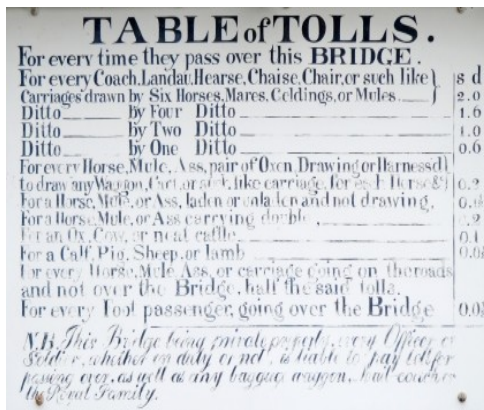 TABLE of TOLLS.
For every time they pass over this BRIDGE.
For every Coach, Landau, Hearse, Chaise, Chair, or such like } s d
Carriages drawn by Six Horses, Mares, Geldings, or Mules 2.0
Ditto by Four Ditto 1.6
Ditto by Two Ditto 1.0
Ditto by One Ditto 0.6
For every Horse, Mule, Ass, pair of Oxen, Drawing or Harness'd
to draw any Waggon, Cart, or such like carriage, for each Horse &c 0.2
For a Horse, Mule, or Ass, laden or unladen and not drawing,
For a Horse, Mule, or Ass carrying double
For an Ox, Cow, or neat cattle
For a Calf, Pig, Sheep, or lamb
For every Horse, Mule, Ass, or carriage going on the roads
and not over the Bridge, half the said tolls.
For every Foot passenger, going over the Bridge
N.B. This Bridge being private property, every Officer or
Soldier, whether on duty or not, is liable to pay toll for
passing over, as well as any baggage waggon, Mail coach or
the Royal Family.